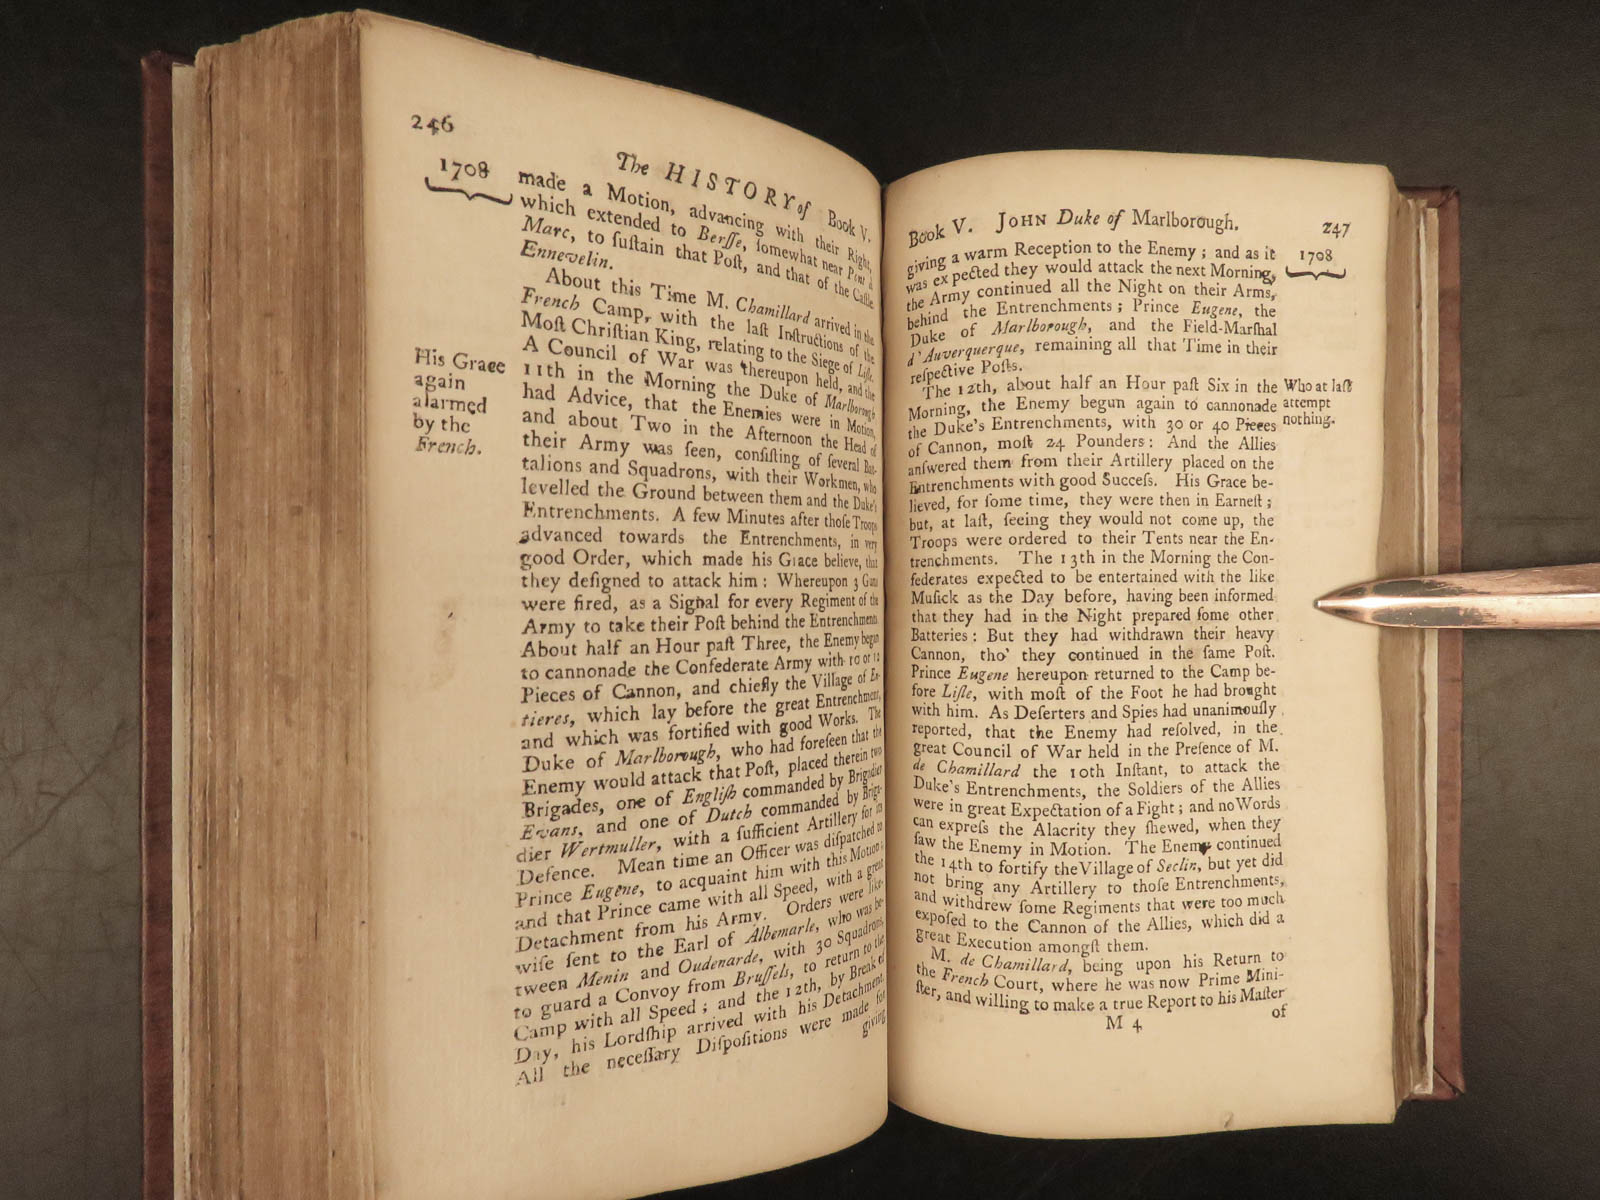 246
The HISTORY of Book V.
1708
made a Motion, advancing with their Right,
which extended to Berſſe, ſomewhat near Pont à
Marc, to ſuſtain that Poſt, and that of the Caſtle
Ennevelin.
About this Time M. Chamillard arrived in the
French Camp, with the laſt Inſtructions of the
Moſt Chriſtian King, relating to the Siege of Liſle.
A Council of War was thereupon held, and the
His Grace
again
alarmed
by the
French.
11th in the Morning the Duke of Marlborough
had Advice, that the Enemies were in Motion,
and about Two in the Afternoon the Head of
their Army was ſeen, conſiſting of ſeveral Bat-
talions and Squadrons, with their Workmen, who
levelled the Ground between them and the Duke's
Entrenchments. A few Minutes after thoſe Troops
advanced towards the Entrenchments, in very
good Order, which made his Grace believe, that
they deſigned to attack him: Whereupon 3 Guns
were fired, as a Signal for every Regiment of the
Army to take their Poſt behind the Entrenchments.
About half an Hour paſt Three, the Enemy began
to cannonade the Confederate Army with 10 or 12
Pieces of Cannon, and chiefly the Village of En-
tieres, which lay before the great Entrenchment,
and which was fortified with good Works. The
Duke of Marlborough, who had foreſeen that the
Enemy would attack that Poſt, placed therein two
Brigades, one of Engliſh commanded by Brigadier
Evans, and one of Dutch commanded by Briga-
dier Wertmuller, with a ſufficient Artillery for its
Defence. Mean time an Officer was diſpatched to
Prince Eugene, to acquaint him with this Motion;
and that Prince came with all Speed, with a great
Detachment from his Army. Orders were like-
wiſe ſent to the Earl of Albemarle, who was be-
tween Menin and Oudenarde, with 30 Squadrons,
to guard a Convoy from Bruſſels, to return to the
Camp with all Speed; and the 12th, by Break of
Day, his Lordſhip arrived with his Detachment.
All the neceſſary Diſpoſitions were made for
giving
Book V. JOHN Duke of Marlborough. 247
1708
giving a warm Reception to the Enemy; and as it
was expected they would attack the next Morning,
the Army continued all the Night on their Arms,
behind the Entrenchments; Prince Eugene, the
Duke of Marlborough, and the Field-Marſhal
d'Auverquerque, remaining all that Time in their
reſpective Poſts.
The 12th, about half an Hour paſt Six in the
Who at laſt
attempt
nothing.
Morning, the Enemy begun again to cannonade
the Duke's Entrenchments, with 30 or 40 Pieces
of Cannon, moſt 24 Pounders: And the Allies
anſwered them from their Artillery placed on the
Entrenchments with good Succeſs. His Grace be-
lieved, for ſome time, they were then in Earneſt;
but, at laſt, ſeeing they would not come up, the
Troops were ordered to their Tents near the En-
trenchments. The 13th in the Morning the Con-
federates expected to be entertained with the like
Muſick as the Day before, having been informed
that they had in the Night prepared ſome other
Batteries: But they had withdrawn their heavy
Cannon, tho' they continued in the ſame Poſt.
Prince Eugene hereupon returned to the Camp be-
fore Liſle, with moſt of the Foot he had brought
with him. As Deſerters and Spies had unanimouſly
reported, that the Enemy had reſolved, in the
great Council of War held in the Preſence of M.
de Chamillard the 10th Inſtant, to attack the
Duke's Entrenchments, the Soldiers of the Allies
were in great Expectation of a Fight; and no Words
can expreſs the Alacrity they ſhewed, when they
ſaw the Enemy in Motion. The Enemy continued
the 14th to fortify the Village of Seclin, but yet did
not bring any Artillery to thoſe Entrenchments,
and withdrew ſome Regiments that were too much
expoſed to the Cannon of the Allies, which did a
great Execution amongſt them.
M. de Chamillard, being upon his Return to
the French Court, where he was now Prime Mini-
ſter, and willing to make a true Report to his Maſter
M 4
of